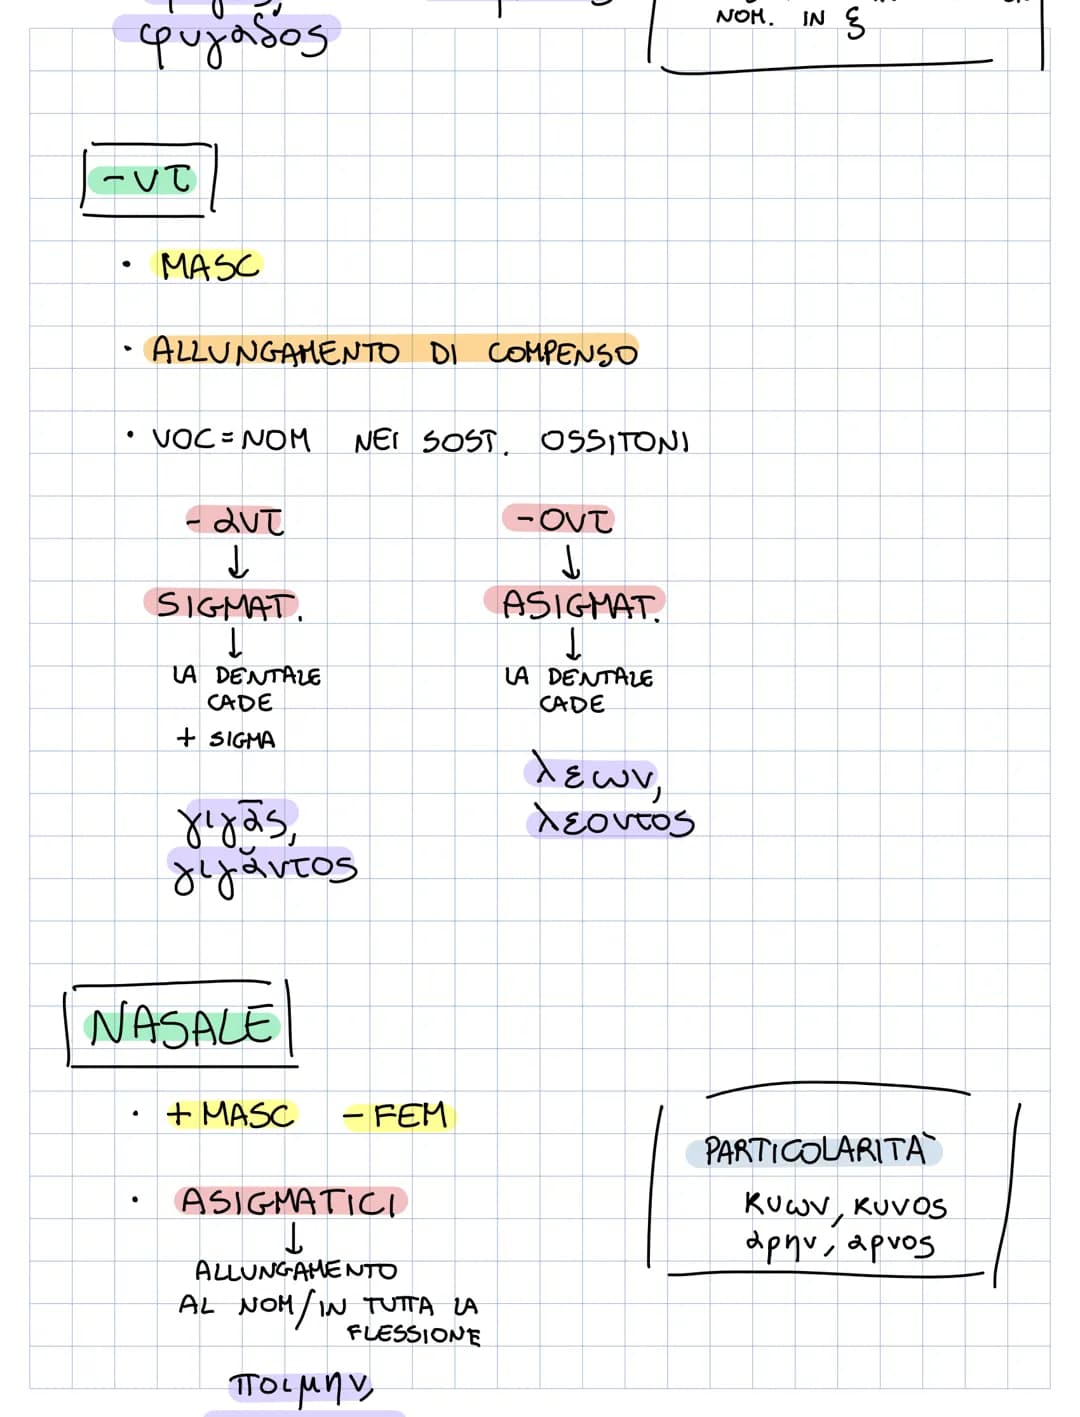 φυγαδος
NOM. IN ξ
-ντ
• MASC
• ALLUNGAMENTO DI COMPENSO
• VOC=NOM NEI SOST. OSSITONI
-αντ
-οντ
↓
↓
SIGMAT.
ASIGMAT.
↓
↓
LA DENTALE
CADE
+ SIGMA
LA DENTALE
CADE
γιγᾱς,
γιγᾰντος
λεων,
λεοντος
NASALE
• +MASC -FEM
• ASIGMATICI
↓
ALLUNGAMENTO
AL NOM/IN TUTTA LA
FLESSIONE
ποιμην,
PARTICOLARITÀ
κυων, κυνος
αρην, αρνος